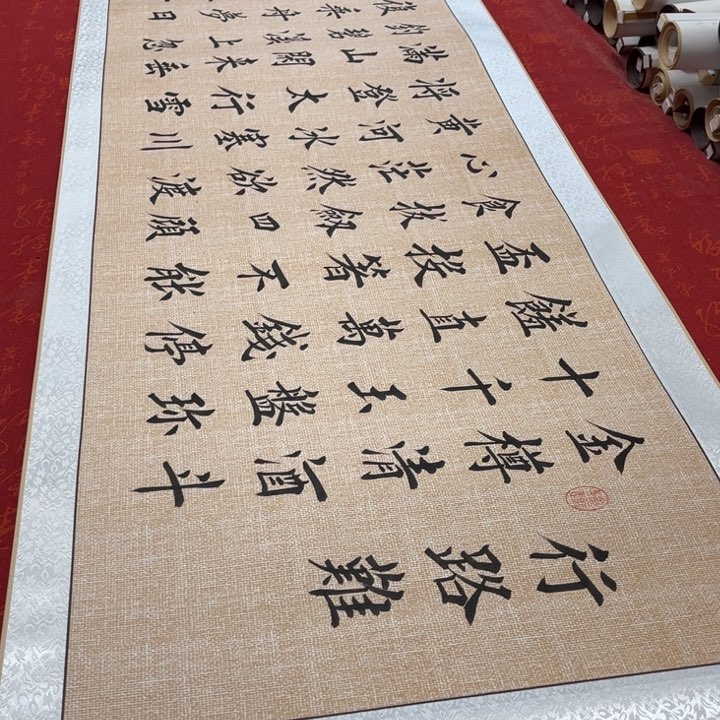 行路難
金樽清酒斗
十千玉盤珍
饈直萬錢停
盃投箸不能
食拔劍四顧
心茫然欲渡
黃河冰塞川
將登太行雪
滿山閒來垂
釣碧溪上忽
復乘舟夢日